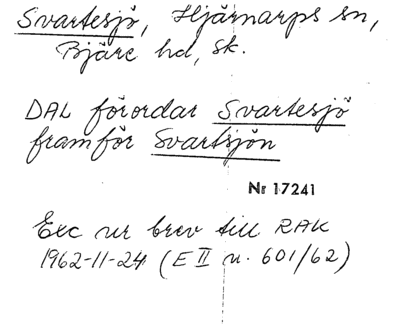 Svartesjö, Hjärnarps sn,
Bjäre hd, Sk.
DAL förordar Svartesjö
framför Svartsjön
Nr 17241
Exc ur brev till RAK
1962-11-24 (E II n. 601/62)